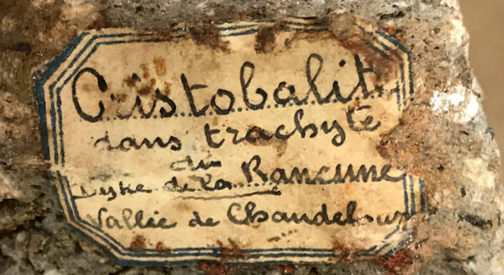 Cristobalite
dans trachyte
du
Dyke de la Rancune
Vallée de Chaudefour